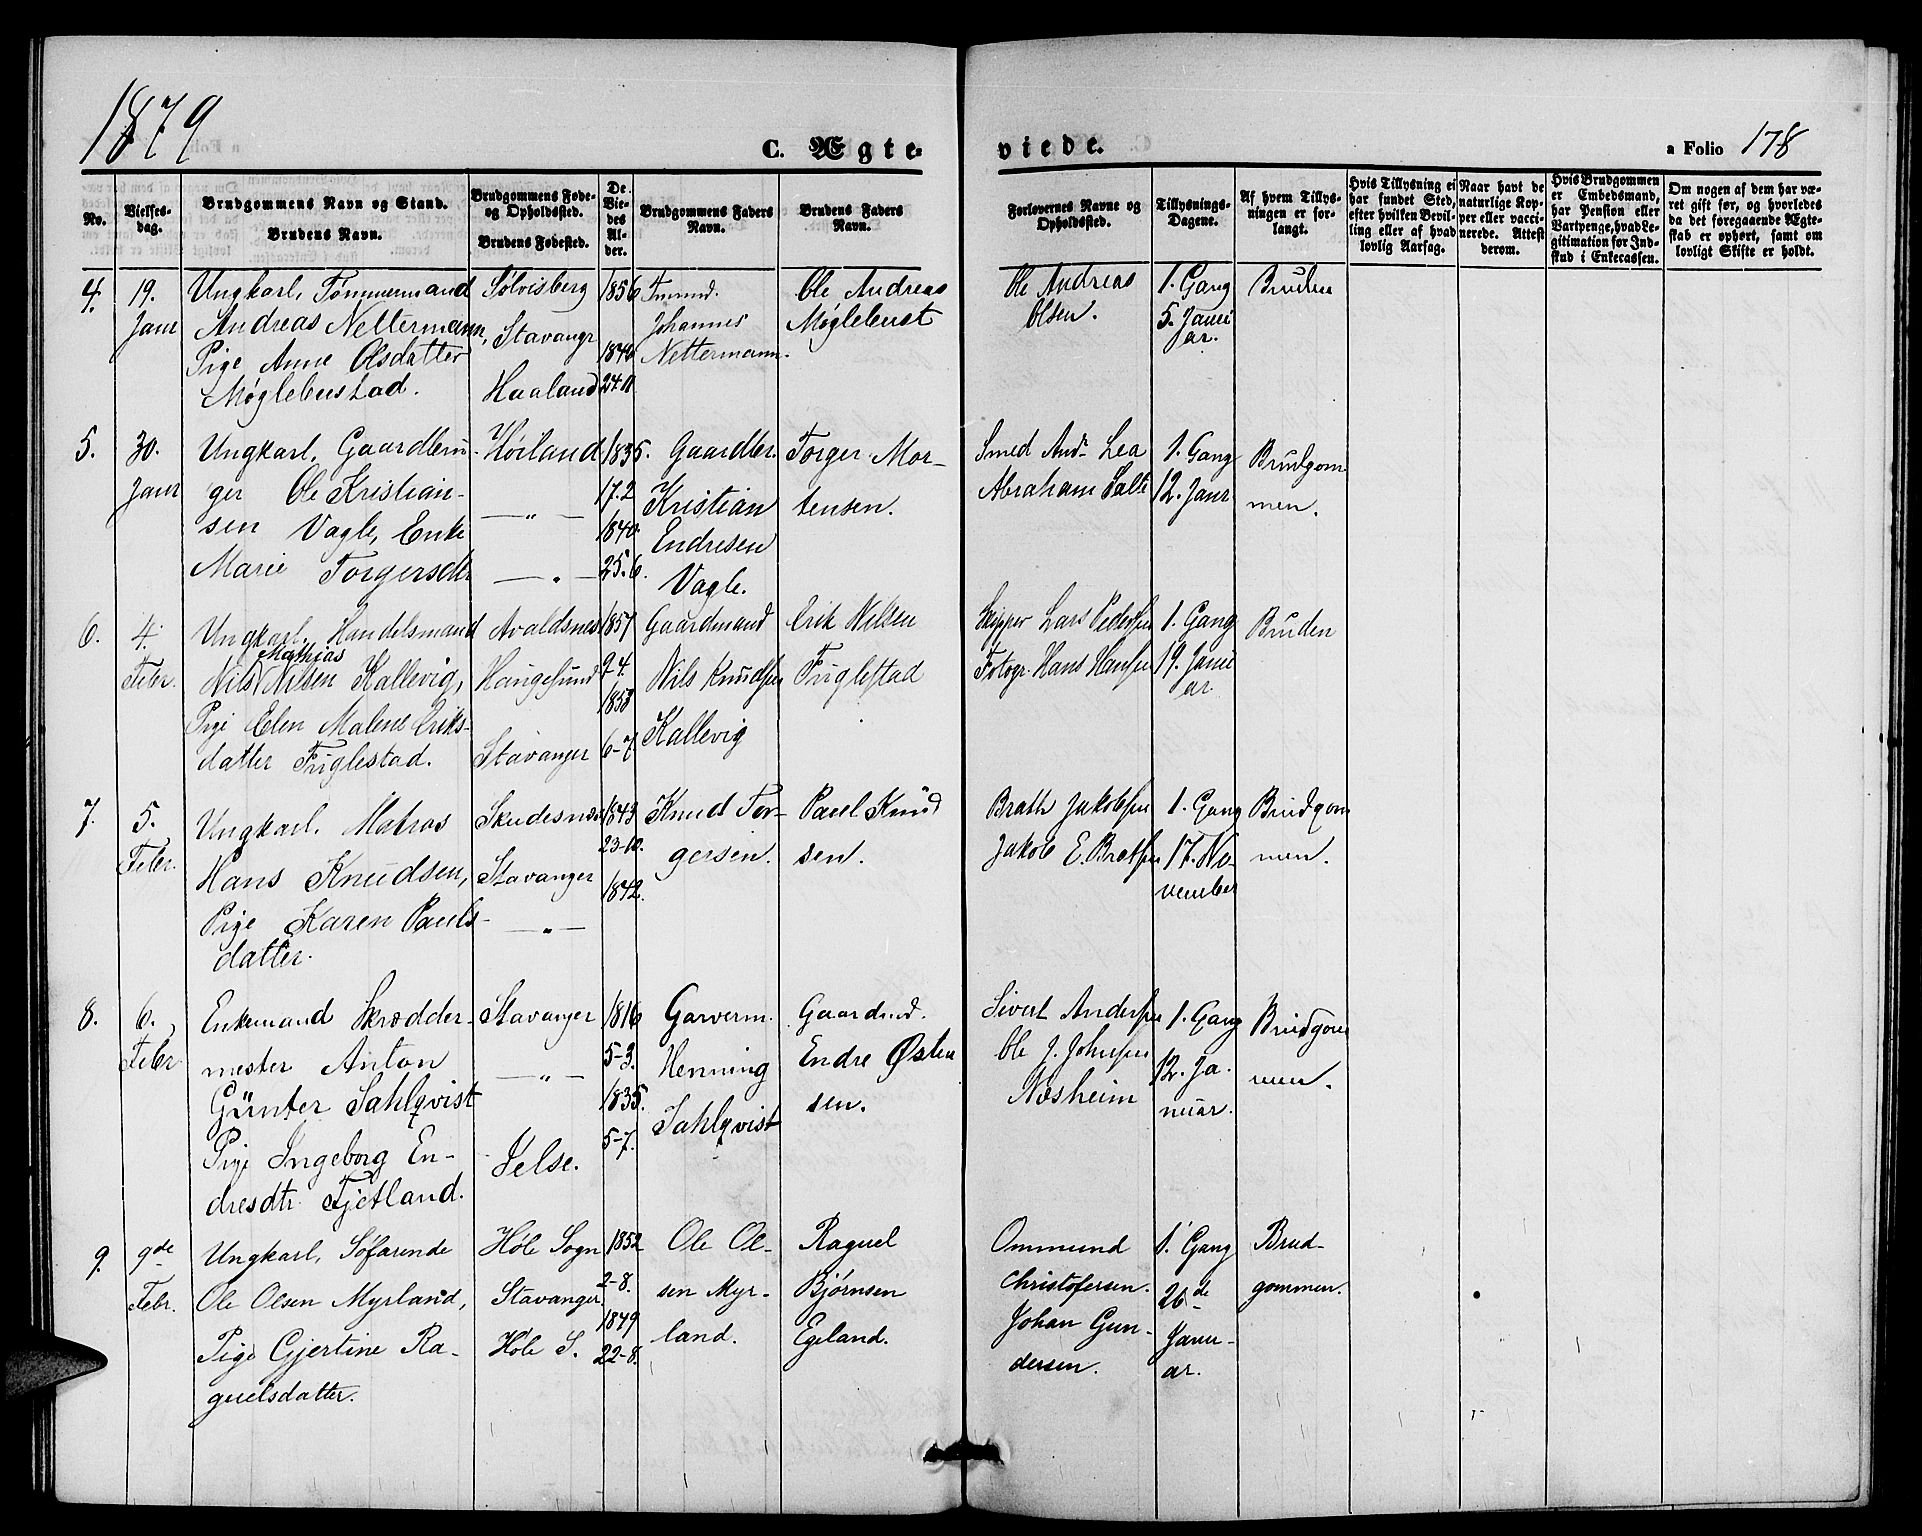 1879
C. Ægte-
viede.
a Folio 178
No.
Vielses-
dag.
Brudgommens Navn og Stand.
Brudens Navn.
Brudgommens Føde-
og Opholdssted.
Brudens Fødested.
De
Vie-
des
Al-
der.
Brudgommens Faders
Navn.
Brudens Faders
Navn.
Forlovernes Navne og
Opholdssted.
Tillysnings-
Dagene.
Af hvem Tillys-
ningen er for-
langt.
Hvis Tillysning ei
har fundet Sted,
efter hvilken Bevil-
ling eller af hvad
lovlig Aarsag.
Naar havt de
naturlige Kop-
per eller vacci-
nerede. Attest
derom.
Hvis Brudgommen
er Embedsmand,
har Pension eller
Vartpenge, hvad Le-
gitimation for Ind-
skud i Enkecassen.
Om nogen af dem har væ-
ret gift før, og hvorledes
da det foregaaende Ægte-
skab er ophørt, samt om
lovligt Skifte er holdt.
4.
19.
Janr
Ungkarl, Tømmermand
Andreas Nettermann,
Pige Anne Olsdatter
Møglebustad.
Sølvisberg
Stavangr
Haaland
1856
1848
24.11
Tmmd.
Johannes
Nettermann.
Ole Andreas
Møglebust
Ole Andreas
Olsen.
1. Gang
5. Janu
ar.
Bruden
5.
30.
Janr
Ungkarl, Gaardbru-
ger Ole Kristian-
sen Vagle, Enke
Marie Torgersdtr
Høiland
— " —
— " —
1835.
17.2
1840.
25.6.
Gaardbr.
Kristian
Endresen
Vagle.
Torger Mor-
tensen.
Smed And. Lea
Abraham Salte
1. Gang
12. Janr
Brudgom
men.
6.
4.
Febr.
Ungkarl. Handelsmand
Mathias
Nils Nilsen Kallevig,
Pige Elen Malene Eriks-
datter Fuglestad.
Avaldsnes
Haugesund
Stavanger
1857
2-4.
1853
6-7.
Gaardmand
Nils Knudsen
Kallevig
Erik Nilsen
Fuglestad
Skipper Lars Pedersen
Fotogr. Hans Hansen
1. Gang
19. Janu
ar.
Bruden
7.
5.
Febr.
Ungkarl. Matros
Hans Knudsen,
Pige Karen Pauls-
datter.
Skudesnæs
Stavanger
— " —
1843
23-10.
1842.
Knud Tor-
gersen.
Paul Knud
sen.
Brath Jakobsen
Jakob E. Brathsen
1. Gang
17. No-
vember
Brudgom
men.
8.
6.
Febr
Enkemand Skrædder-
mester Anton
Günter Sahlqvist
Pige Ingeborg En-
dresdtr Tjetland.
Stavanger
— " —
Jelse.
1816
5-3.
1835.
5-7.
Garverm.
Henning
Sahlqvist
Gaardmd.
Endre Østen
sen.
Sivert Andersen
Ole J. Johnsen
Næsheim
1. Gang
12. Ja.
nuar.
Brudgom
men.
9.
9de
Febr.
Ungkarl, Søfarende
Ole Olsen Myrland,
Pige Gjertine Ra-
guelsdatter.
Høle Sogn
Stavanger
Høle S.
1852
2-8.
1849
22-8.
Ole Ol-
sen Myr-
land.
Raguel
Bjørnsen
Egeland.
Ommund
Christofersen.
Johan Gun-
dersen.
1. Gang
26de
Janu-
ar.
Brud-
gommen.